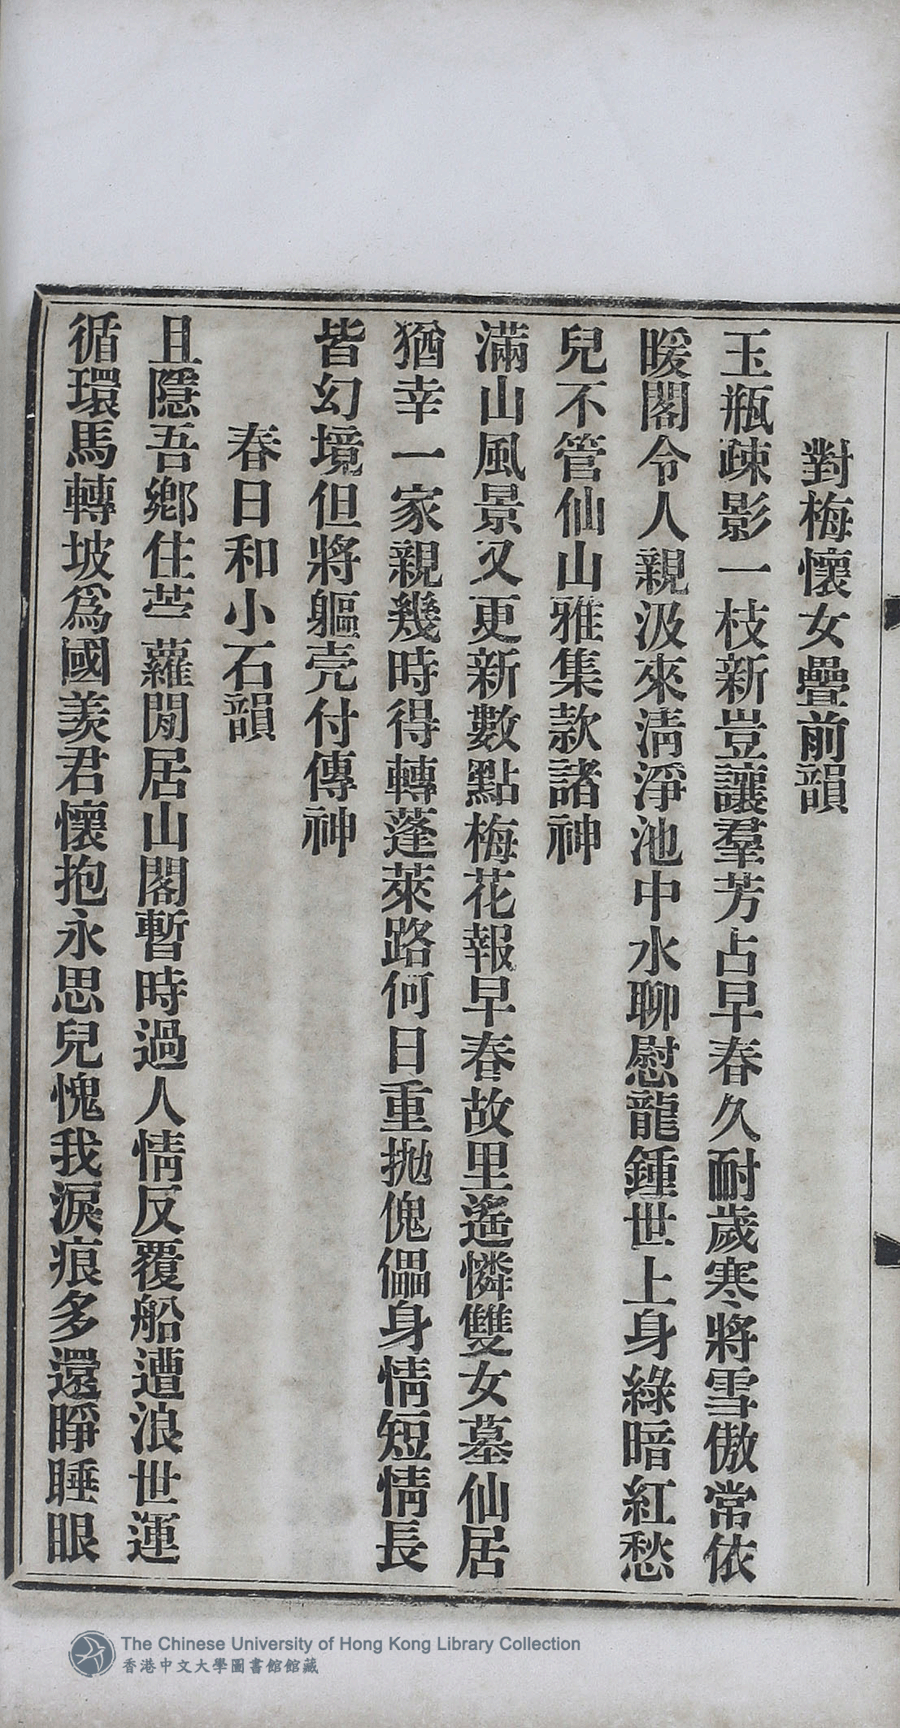 對梅懷女疊前韻
玉瓶疎影一枝新豈讓羣芳占早春久耐歲寒將雪傲常依
暖閣令人親汲來淸淨池中水聊慰龍鍾世上身綠暗紅愁
兒不管仙山雅集款諸神
滿山風景又更新數點梅花報早春故里遙憐雙女墓仙居
猶幸一家親幾時得轉蓬萊路何日重拋傀儡身情短情長
皆幻境但將軀壳付傳神
春日和小石韻
且隱吾鄉住苎蘿閒居山閣暫時過人情反覆船遭浪世運
循環馬轉坡爲國羨君懷抱永思兒愧我淚痕多還睜睡眼
The Chinese University of Hong Kong Library Collection
香港中文大學圖書館館藏